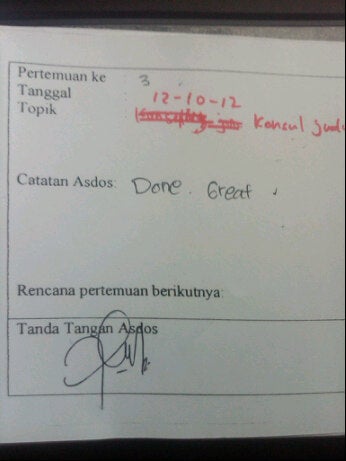 Pertemuan ke 3
Tanggal 12-10-12
Topik Konsul
Catatan Asdos: Done. Great.
Rencana pertemuan berikutnya:
Tanda Tangan Asdos